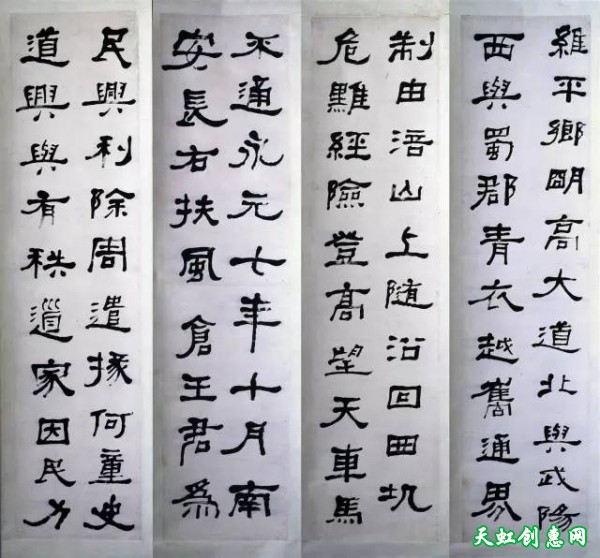 維平鄉明高大道北與武陽
西與蜀郡青衣越嶲通界
制由涪山上随沿回田坑
危難經險登高望天車馬
不通永元七年十月南
安長右扶風倉王君爲
民興利除周遣掾何童史
道興與有秩遒家因民力
天虹创惠网